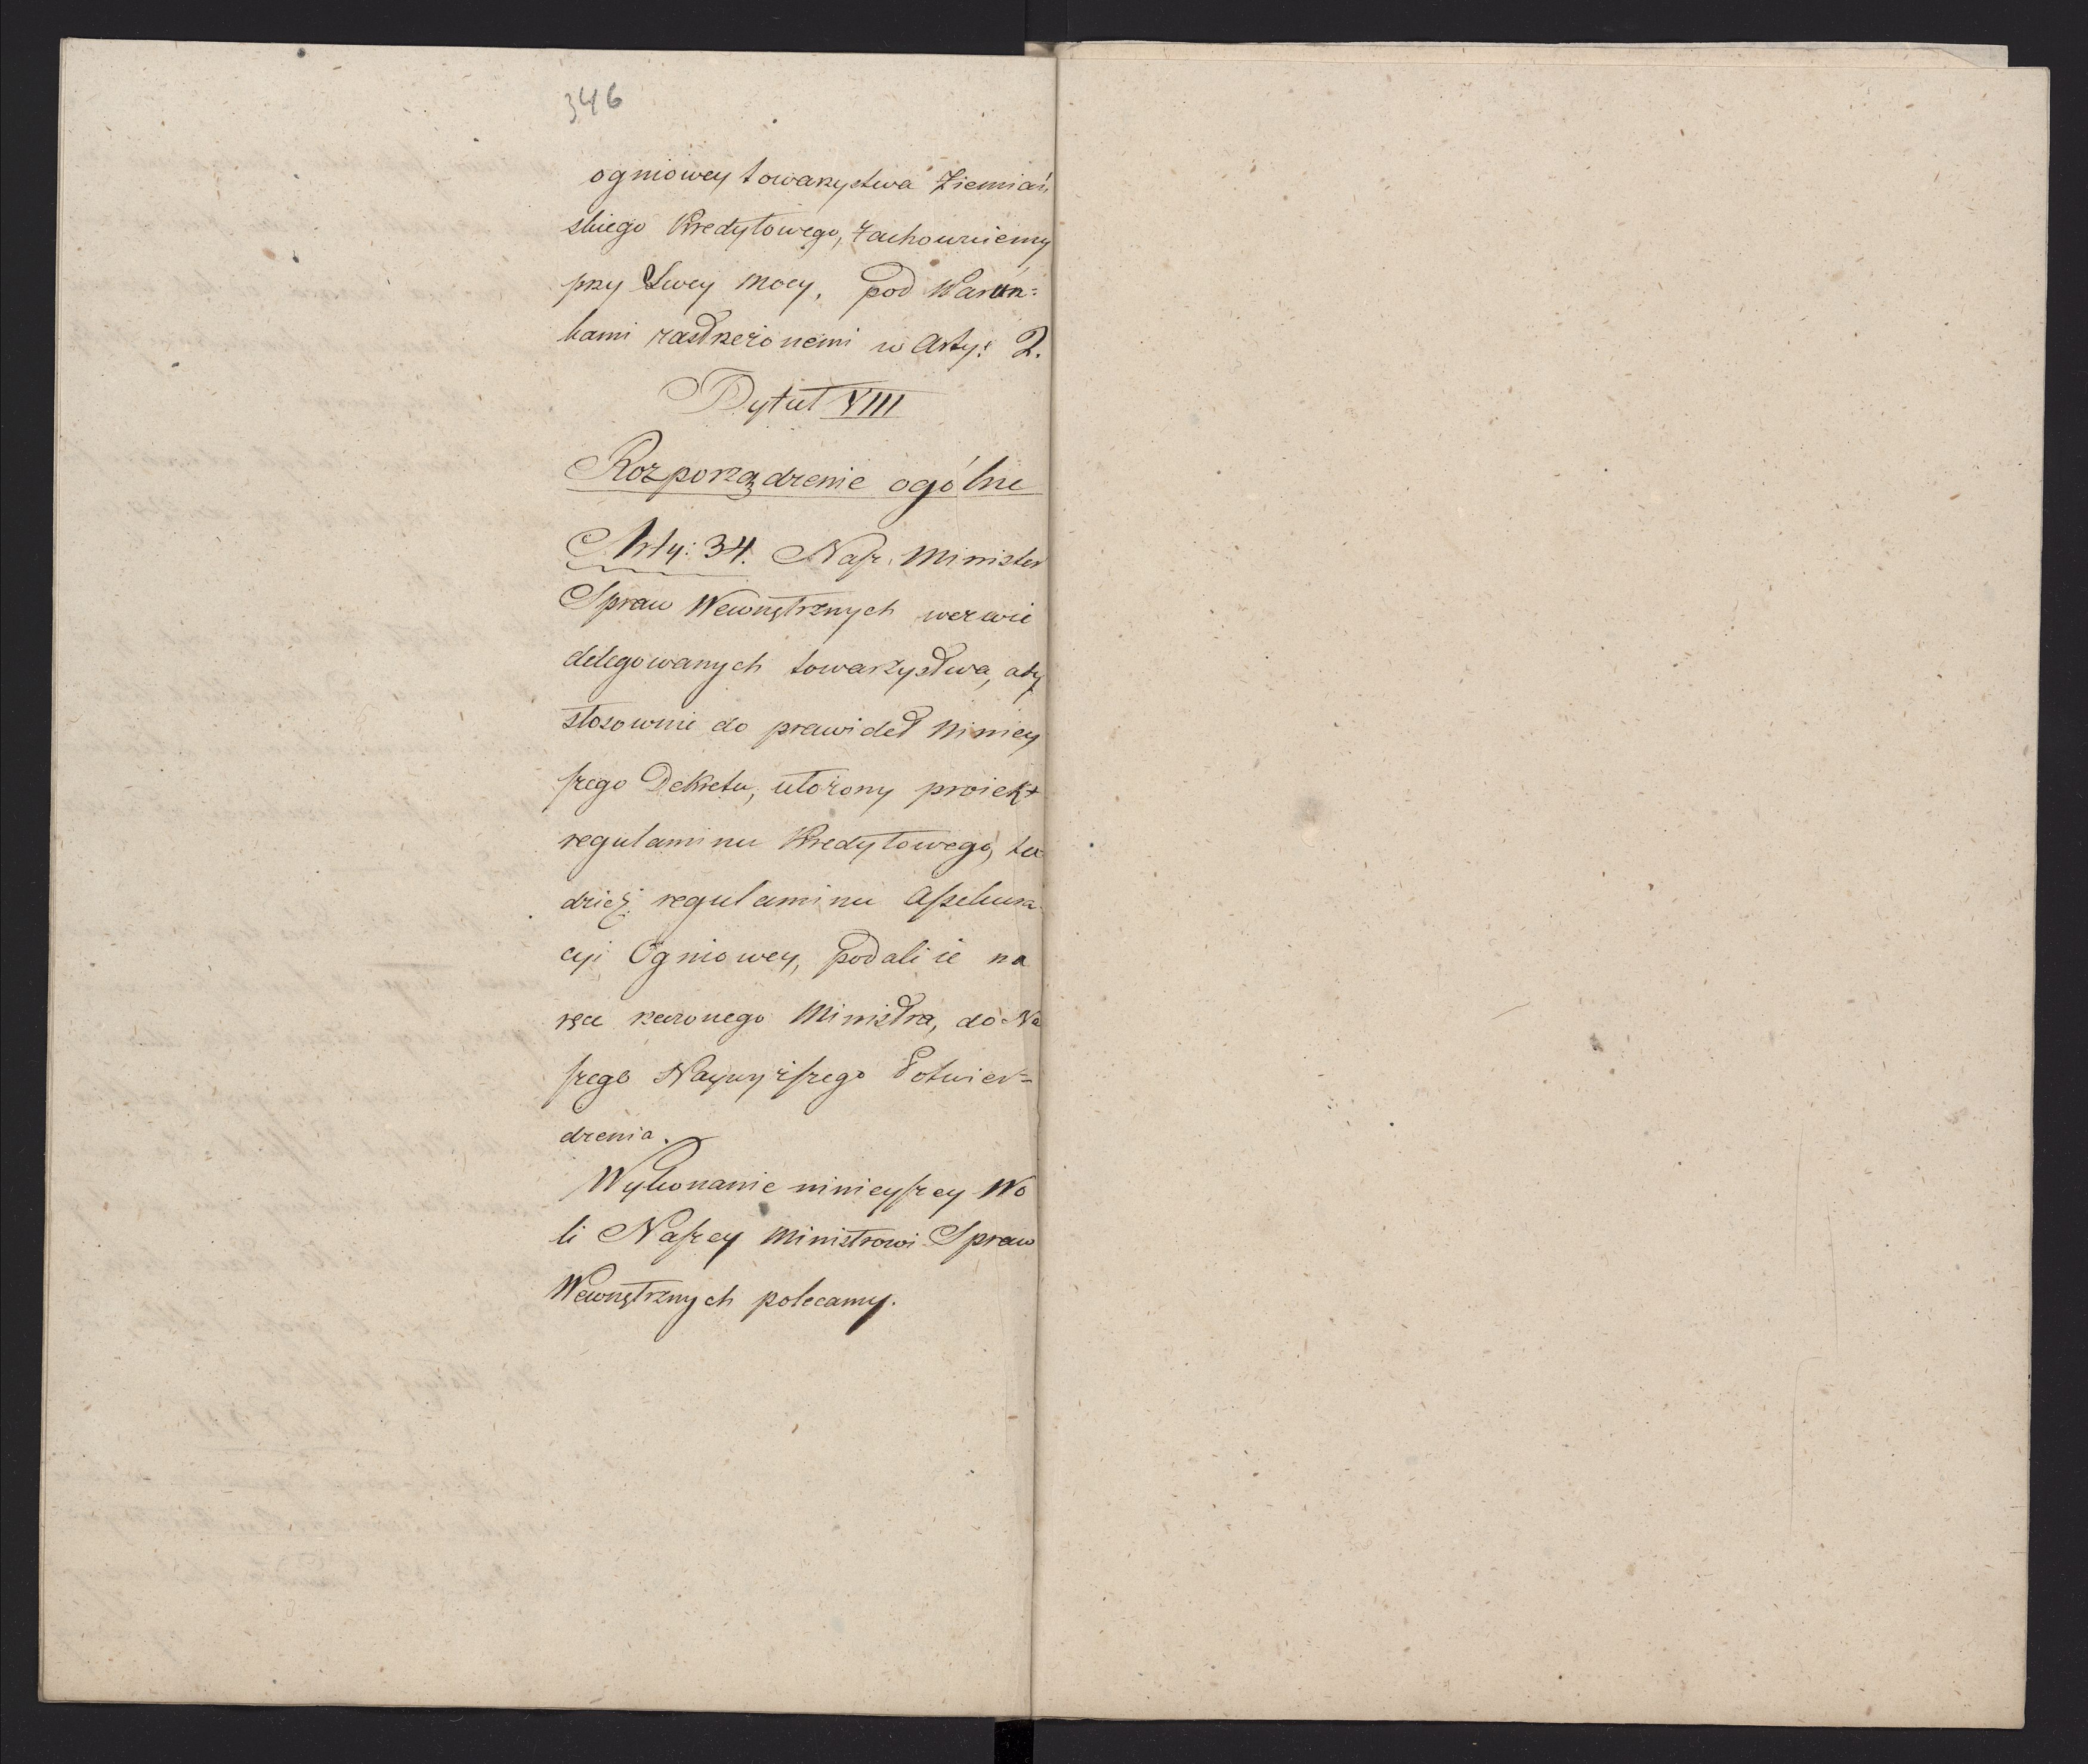 346
ogniowey towarzystwa Ziemiań
skiego Kredytowego, zachowuiemy
przy Swey mocy, pod Warun=
kami zastrzeżonemi w Arty: 2.
Tytuł VIII
Rozporządzenie ogólne
Arty: 34. Nasz Minister
Spraw Wewnętrznych wezwie
delegowanych towarzystwa, aby
stosownie do prawideł niniey
szego Dekretu, ułożony proiekt
regulaminu Kredytowego, tu
dzież regulaminu Assekura
cyi Ogniowey, podali ie na
ręce rzeczonego Ministra, do Na
szego Naywyższego Potwier=
dzenia.
Wykonanie ninieyszey Wo
li Naszey Ministrowi Spraw
Wewnętrznych polecamy.